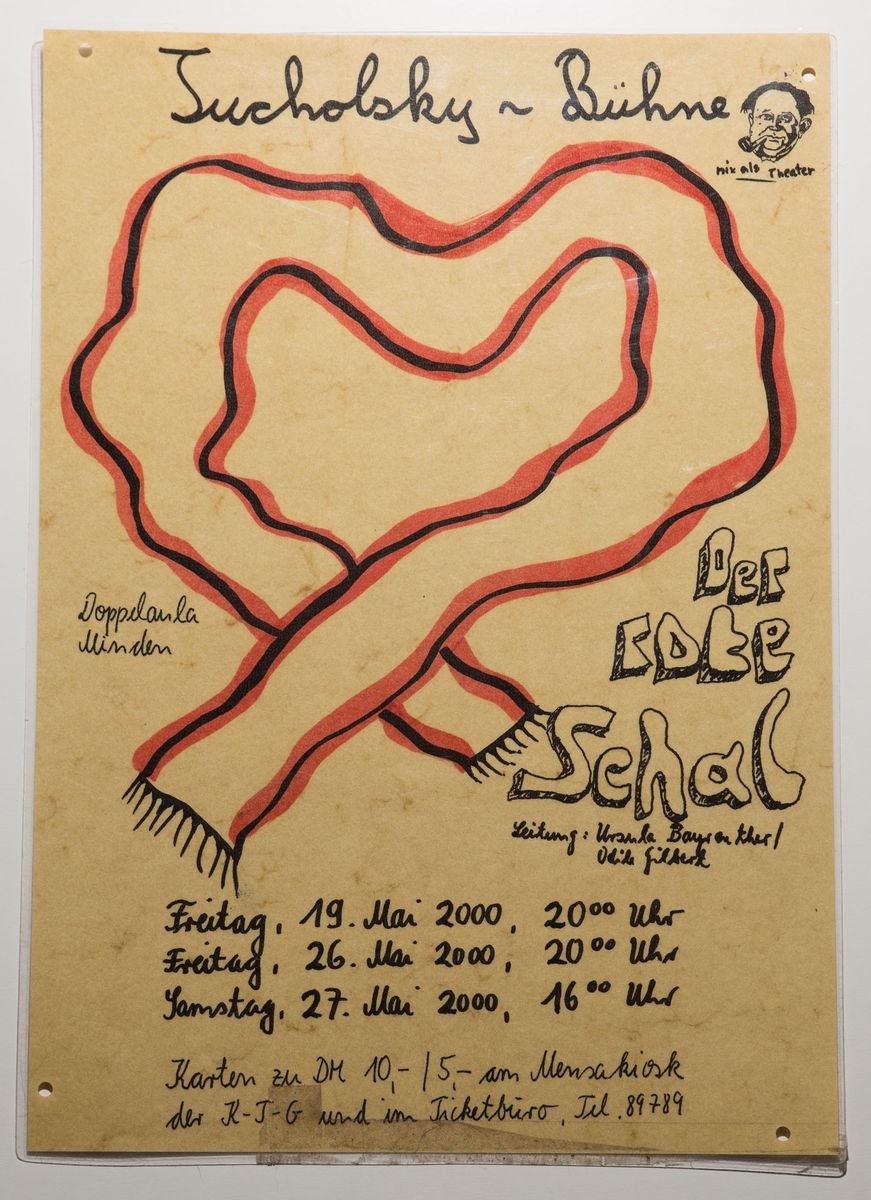 Tucholsky ~ Bühne
nix als Theater
Doppelaula
Minden
Der
rote
Schal
Leitung: Ursula Bayreuther/
Odile Gilbert
Freitag, 19. Mai 2000, 20⁰⁰ Uhr
Freitag, 26. Mai 2000, 20⁰⁰ Uhr
Samstag, 27. Mai 2000, 16⁰⁰ Uhr
Karten zu DM 10,- / 5,- am Mensakiosk
der K-T-G und im Ticketbüro, Tel. 89789